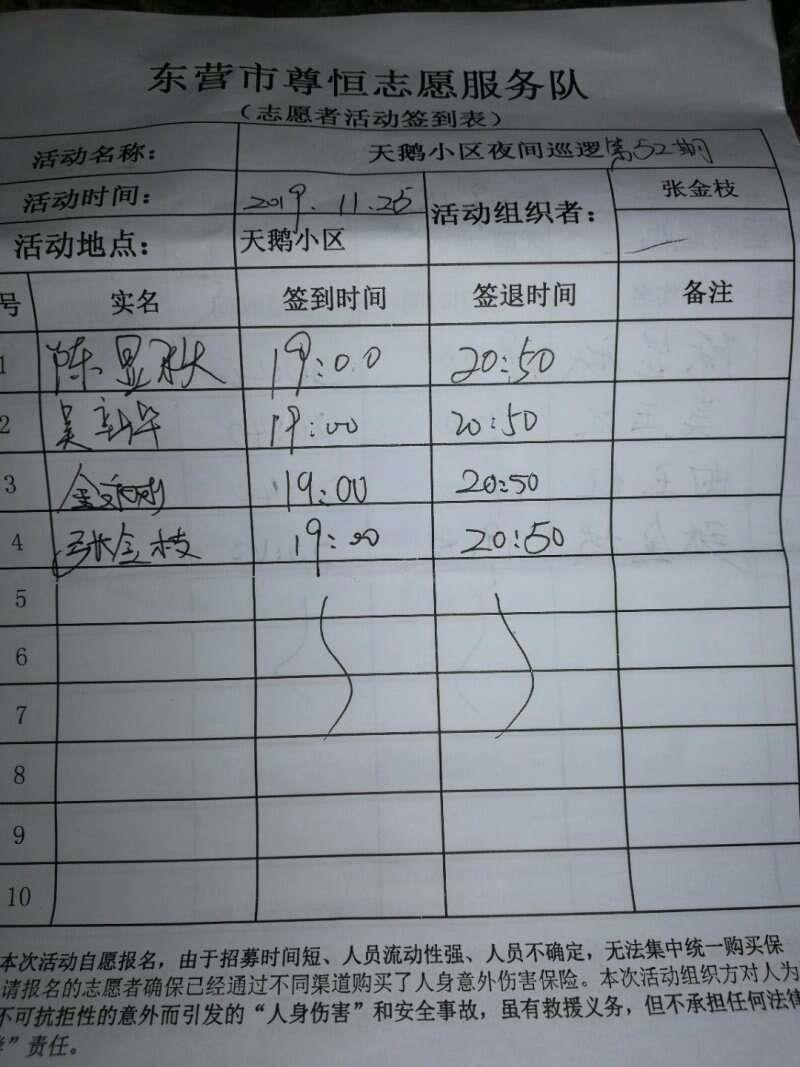 东营市尊恒志愿服务队
（志愿者活动签到表）
活动名称： 天鹅小区夜间巡逻第52期
活动时间： 2019.11.25 活动组织者： 张金枝
活动地点： 天鹅小区
号 实名 签到时间 签退时间 备注
1 陈显秋 19:00 20:50
2 吴新华 19:00 20:50
3 19:00 20:50
4 张金枝 19:00 20:50
5
6
7
8
9
10
本次活动自愿报名，由于招募时间短、人员流动性强、人员不确定，无法集中统一购买保
请报名的志愿者确保已经通过不同渠道购买了人身意外伤害保险。本次活动组织方对人为
不可抗拒性的意外而引发的“人身伤害”和安全事故，虽有救援义务，但不承担任何法律
”责任。